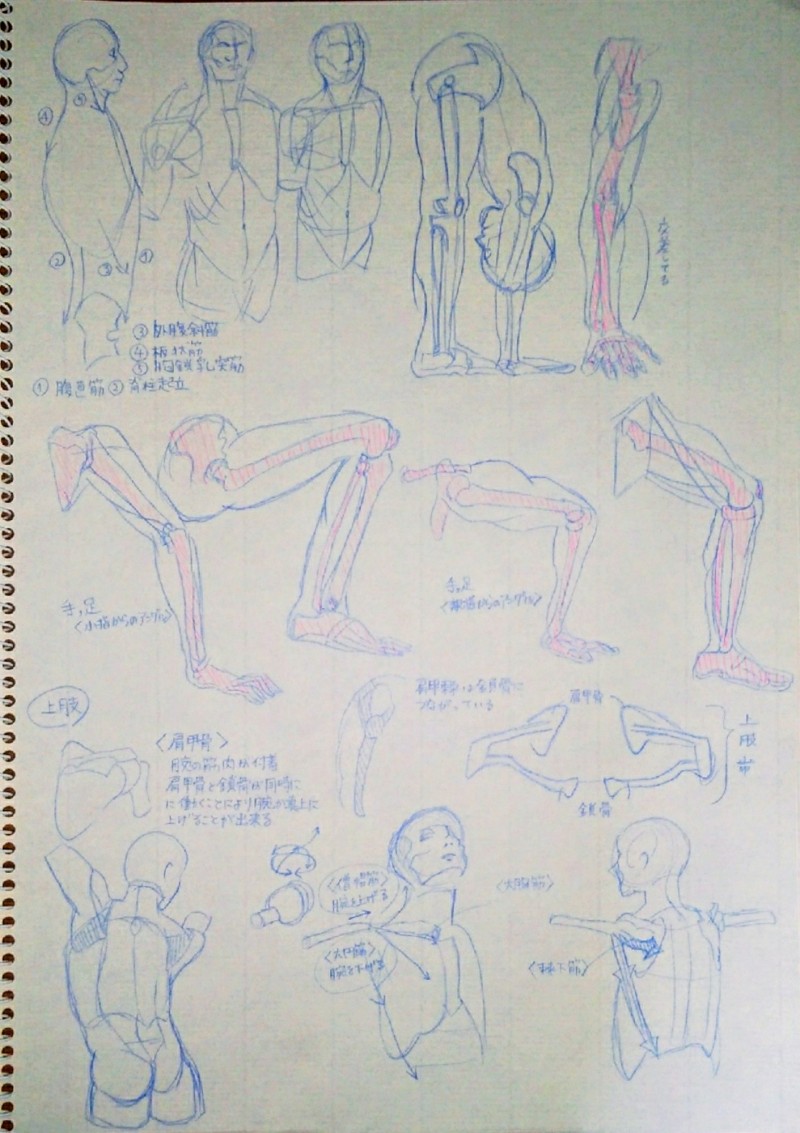 ④
⑤
②
③
①
③ 外腹斜筋
④ 板状筋
⑤ 胸鎖乳突筋
① 腹直筋 ② 脊柱起立
交差してる
手,足
〈小指からのアングル〉
手,足
〈親指からのアングル〉
上肢
〈肩甲骨〉
腕の筋肉が付着
肩甲骨と鎖骨が同時に
に働くことにより腕が真上に
上げることが出来る
肩甲骨は全鎖骨に
つながっている
肩甲骨
上肢帯
鎖骨
〈僧帽筋〉
腕を上げる
〈大胸筋〉
腕を下げる
〈棘下筋〉